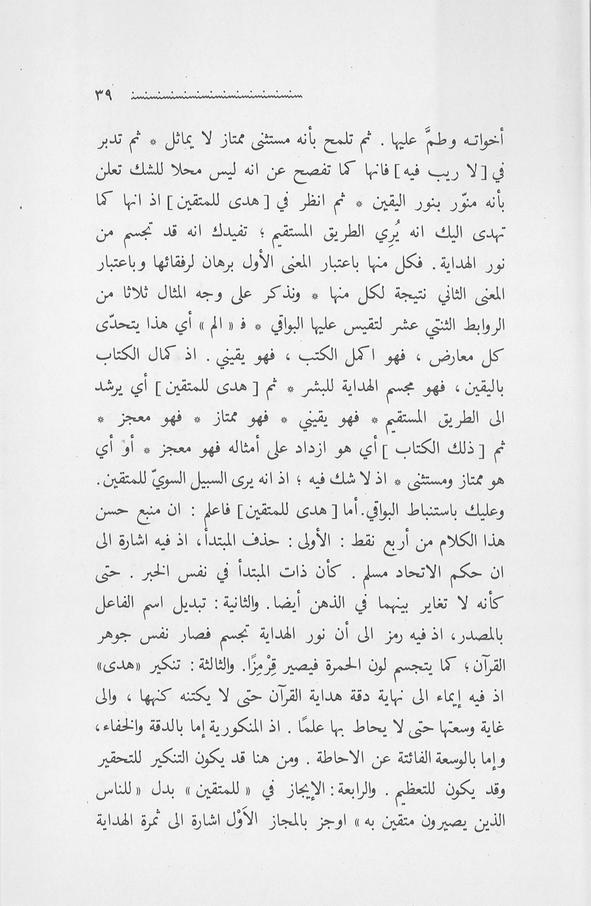 ٣٩
أخواتـه وطمَّ عليها . ثم تلمح بأنه مستثنى ممتاز لا يماثل * ثم تدبر
في [ لا ريب فيه ] فانها كما تفصح عن انه ليس محلا للشك تعلن
بأنه منوّر بنور اليقين * ثم انظر في [ هدى للمتقين ] اذ انها كما
تهدى اليك انه يُرِي الطريق المستقيم ؛ تفيدك انه قد تجسم من
نور الهداية . فكل منها باعتبار المعنى الأول برهان لرفقائها وباعتبار
المعنى الثاني نتيجة لكل منها * ونذكر على وجه المثال ثلاثا من
الروابط الثنتي عشر لتقيس عليها البواقي * فـ « الم » أي هذا يتحدّى
كل معارض ، فهو اكمل الكتب ، فهو يقيني . اذ كمال الكتاب
باليقين ، فهو مجسم الهداية للبشر * ثم [ هدى للمتقين ] أي يرشد
الى الطريق المستقيم * فهو يقيني * فهو ممتاز * فهو معجز *
ثم [ ذلك الكتاب ] أي هو ازداد على أمثاله فهو معجز * أو أي
هو ممتاز ومستثنى * اذ لا شك فيه ؛ اذ انه يرى السبيل السويّ للمتقين .
وعليك باستنباط البواقي. أما [ هدى للمتقين ] فاعلم : ان منبع حسن
هذا الكلام من أربع نقط : الأولى : حذف المبتدأ، اذ فيه اشارة الى
ان حكم الاتحاد مسلم . كأن ذات المبتدأ في نفس الخبر . حتى
كأنه لا تغاير بينهما في الذهن أيضا. والثانية : تبديل اسم الفاعل
بالمصدر، اذ فيه رمز الى أن نور الهداية تجسم فصار نفس جوهر
القرآن ؛ كما يتجسم لون الحمرة فيصير قِرْمِزًا. والثالثة : تنكير «هدى»
اذ فيه إيماء الى نهاية دقة هداية القرآن حتى لا يكتنه كنهها ، والى
غاية وسعتها حتى لا يحاط بها علمًا . اذ المنكورية إما بالدقة والخفاء ،
وإما بالوسعة الفائتة عن الاحاطة . ومن هنا قد يكون التنكير للتحقير
وقد يكون للتعظيم . والرابعة : الإيجاز في « للمتقين » بدل « للناس
الذين يصيرون متقين به » اوجز بالمجاز الأَوْل اشارة الى ثمرة الهداية